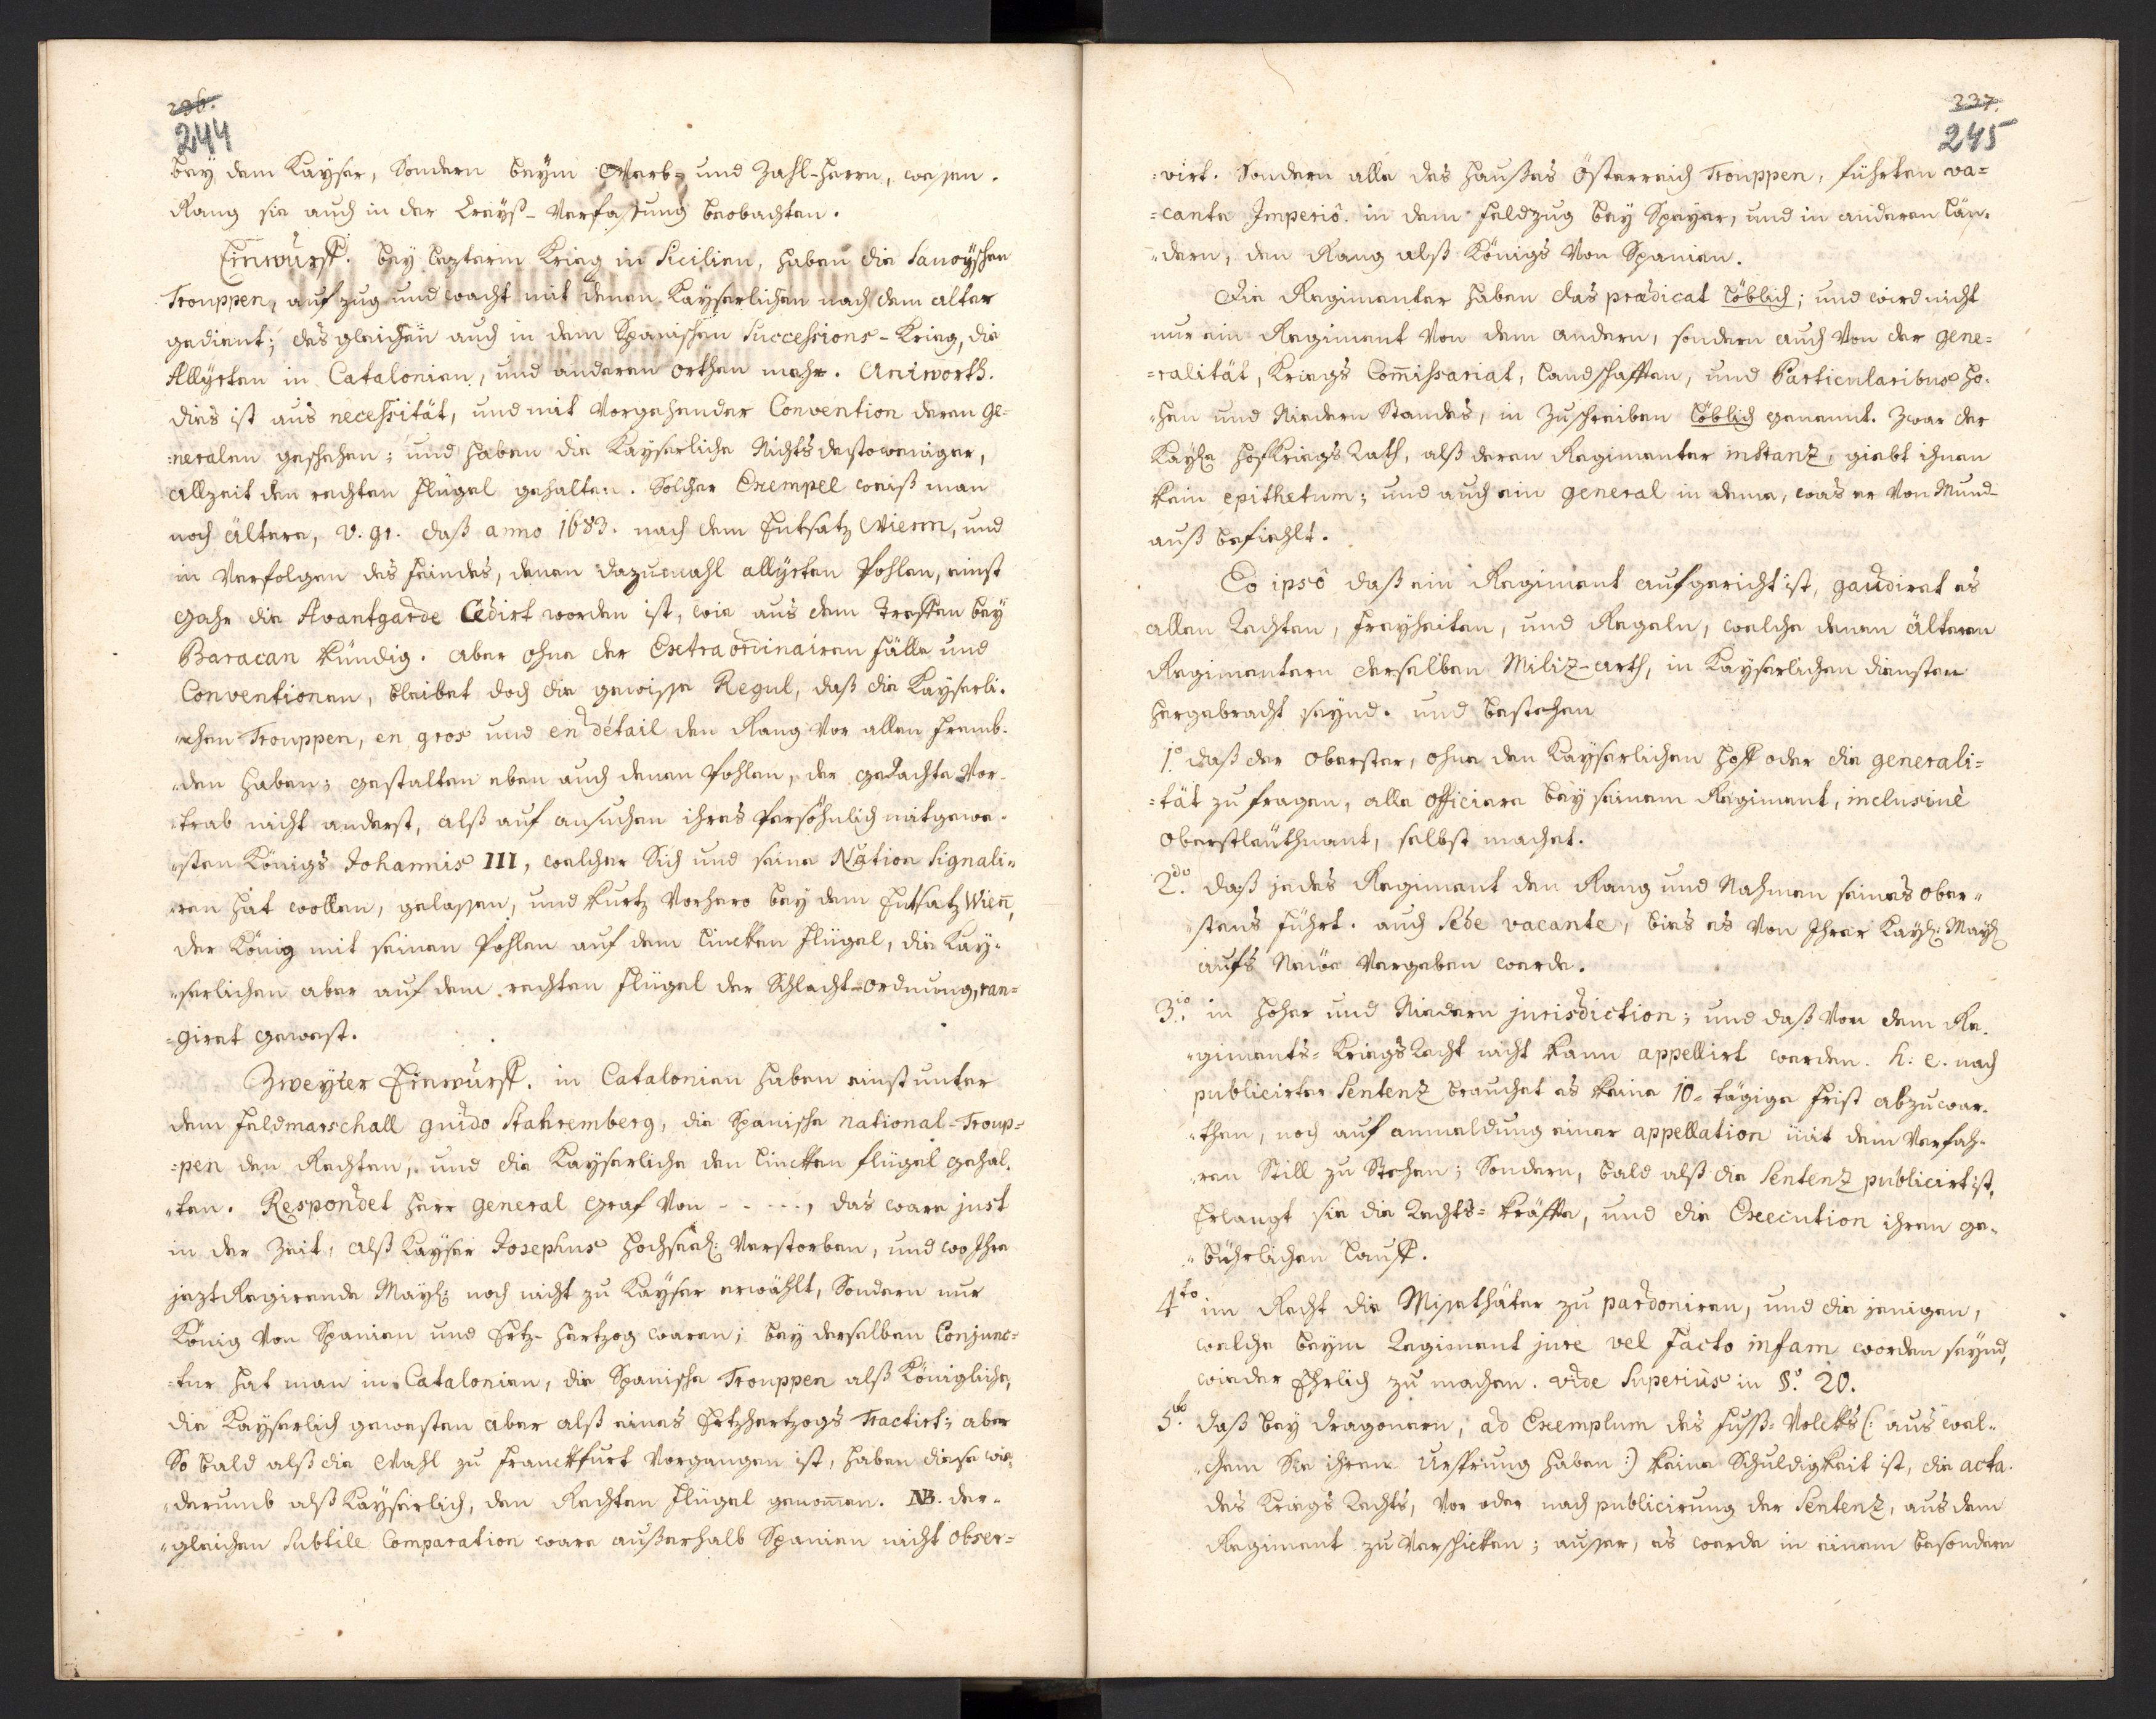 236.
244
bey dem Kayser, Sondern beym Werb- und Zahl-Herrn, wessen
Rang sie auch in der Creyß-Verfassung beobachten.
Einwurff. bey lezterm Krieg in Sicilien, haben die Savoyschen
Trouppen, aufzug und wacht mit denen Kayserlichen nach dem alter
gedient; desgleichen auch in dem Spanischen Successions-Krieg, die
Allyrten in Catalonien, und anderen orthen mehr. Antworth.
dies ist aus necessität, und mit Vorgehender Convention deren Ge-
neralen geschehen; und haben die Kayserliche Nichts destoweniger,
allzeit den rechten Flügel gehalten. Solcher Exempel weiß man
noch ältere, v. gr. daß anno 1683. nach dem Entsatz Wienn, und
in Verfolgen des Feindes, denen dazumahl allyrten Pohlen, einst
gahr die Avantgarde Cedirt worden ist, wie aus dem Treffen bey
Baracan kündig. aber ohne der Extraordinairen Fälle und
Conventionen, bleibet doch die gewisse Regul, daß die Kayserli-
chen Trouppen, en gros und en détail den Rang vor allen fremb-
den haben; gestalten eben auch denen Pohlen, der gedachte Vor-
trab nicht anderst, alß auf ansuchen ihres Persöhnlich mitgewe-
sten Königs Johannis III, welcher Sich und seine Nation Signali-
ren hat wollen, gelassen, und kurtz Vorhero bey dem Entsatz Wien̄,
der König mit seinen Pohlen auf dem lincken Flügel, die Kay-
serlichen aber auf dem rechten Flügel der Schlacht-ordnung, ran-
giret gewest.
Zweyter Einwurff. in Catalonien haben einst unter
dem Feldmarschall guido Stahremberg, die Spanische national-Troup-
pen den Rechten, und die Kayserliche den lincken flügel gehal-
ten. Respondet Herr General Graf Von - - - - -, das ware just
in der Zeit, alß Kayser Josephus Hochseel: Verstorben, und wo Ihre
jezt Regirende Mayl: noch nicht zu Kayser erwählt, Sondern nur
König Von Spanien und Ertz-Hertzog waren; bey derselben Conjunc-
tur hat man in Catalonien, die Spanische Trouppen alß Königliche,
die Kayserlich gewesten aber alß eines Ertzhertzogs Tractirt; aber
So bald alß die Wahl zu Franckfurt Vorgangen ist, haben diese wie-
derumb alß Kayserlich, den Rechten Flügel genom̄en. NB. der-
gleichen Subtile Comparation ware außerhalb Spanien nicht obser-
237.
245
virt. Sondern alle des Haußes Österreich Trouppen, führten va-
cante Imperiô. in dem Feldzug bey Speyer, und in anderen Län-
dern, den Rang alß Königs Von Spanien.
Die Regimenter haben das prædicat löblich; und wird nicht
nur ein Regiment Von dem andern, sondern auch Von der Gene-
ralität, Kriegs Com̄issariat, Landschafften, und Particularibus ho-
hen und Niedern Standes, in Zuschreiben löblich genennt. Zwar der
Kayl: HofKriegs Rath, alß deren Regimenter instanz, giebt ihnen
kein epithetum; und auch ein General in deme, was er Von Mund-
auß befiehlt.
Eo ipsô daß ein Regiment aufgericht ist, gaudiret es
allen Rechten, Freyheiten, und Regeln, welche denen älteren
Regimentern derselben Miliz-arth, in Kayserlichen diensten
hergebracht seynd. und bestehen
1o. daß der Oberster, ohne den Kayserlichen Hoff oder die Generali-
tät zu fragen, alle officiere bey seinem Regiment, inclusivè
Oberstleüthnant, selbst machet.
2do. daß jedes Regiment den Rang und Nahmen seines Ober-
stens führt. auch Sede vacante, bies es Von Ihrer Kayl: Mayl:
aufs Neüe Vergeben werde.
3io. in hoher und Niedern jurisdiction; und daß Von dem Re-
giments-KriegsRecht nicht kann appellirt werden. h. e. nach
publicirter Sentenz brauchet es keine 10-tägige Frist abzuwar-
then, noch auf anmeldung einer appellation mit dem Verfah-
ren Still zu Stehen; Sondern, bald alß die Sentenz publicirt ist,
Erlangt sie die Rechts-kräffte, und die Execution ihren ge-
bührlichen Lauff.
4to im Recht die Missethäter zu pardoniren, und die jenigen,
welche beym Regiment jure vel facto infam worden seynd,
wieder Ehrlich zu machen. vide Superiùs in §o. 20.
5to. daß bey dragonern, ad Exemplum des Fuß-Volcks (: aus wel-
chem Sie ihren Ursprung haben :) keine Schuldigkeit ist, die acta
des Kriegs Rechts, Vor oder nach publicirung der Sentenz, aus dem
Regiment zu Verschicken; ausser, es werde in einem besondern